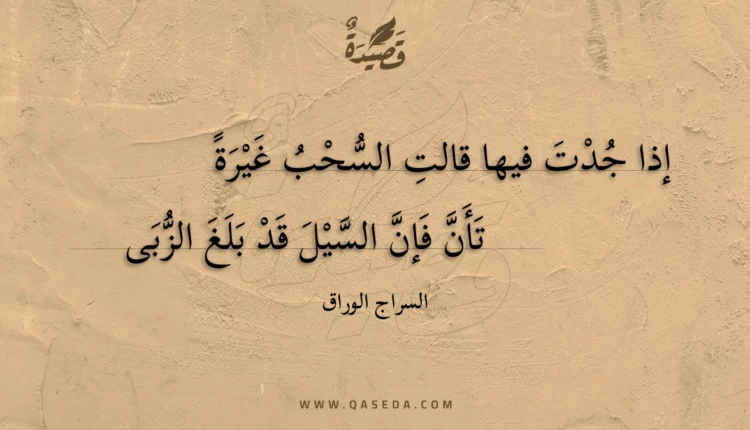 قَصِيدَةٌ
إذا جُدْتَ فيها قالتِ السُّحْبُ غَيْرَةً
تَأَنَّ فَإنَّ السَّيْلَ قَدْ بَلَغَ الزُّبَى
السراج الوراق
WWW.QASEDA.COM